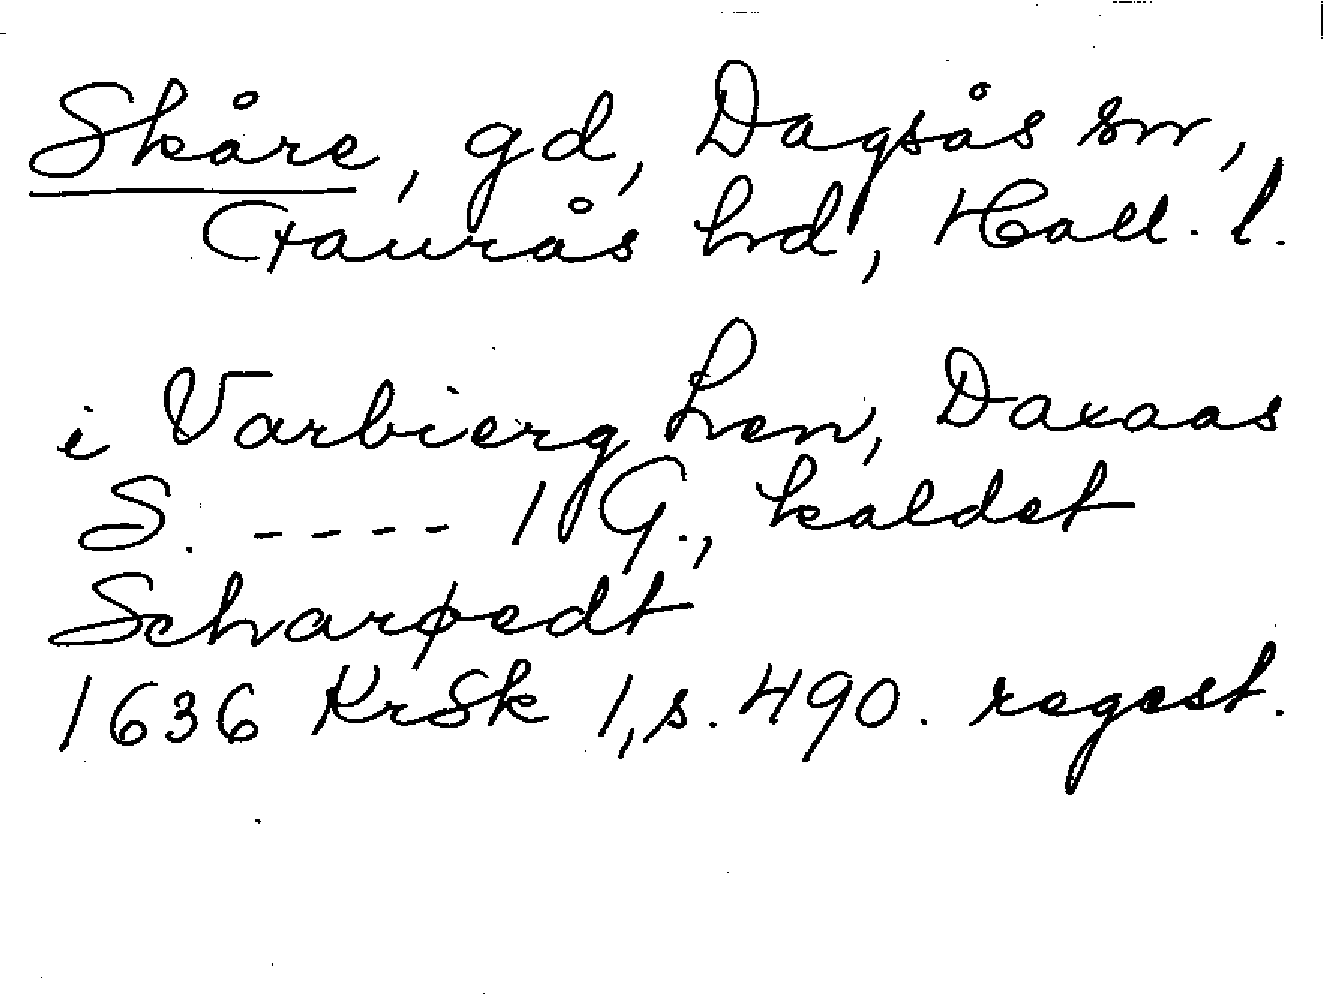 Skåre, gd, Dagsås sn,
Faurås hd, Hall. l.
i Varbierg Len, Daxaas
S. - - - - 1 G., kaldet
Scharpedt
1636 KrSk 1, s. 490. regest.